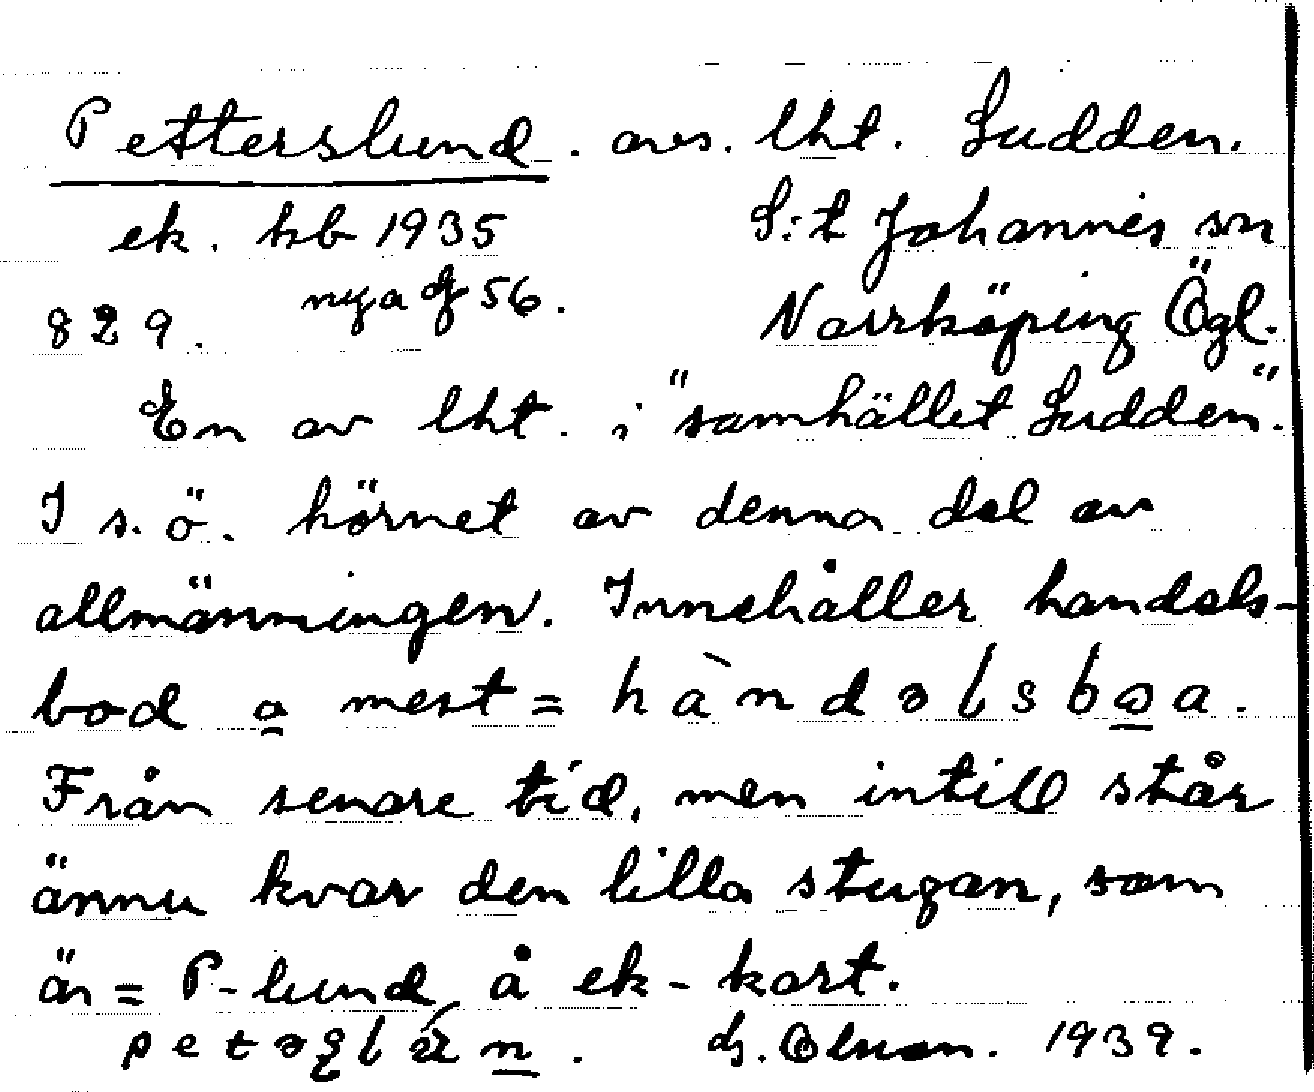 Petterslund. avs. lht. Sudden.
ek. kb 1935 S:t Johannes sn
829. nya J 56. Norrköping Ögl.
En av lht. i "samhället Sudden".
I s.ö. hörnet av denna del av
allmänningen. Innehåller handels-
bod o mest = hàndəlsboa.
Från senare tid, men intill står
ännu kvar den lilla stugan, som
är = P-lund å ek-kart.
1939.